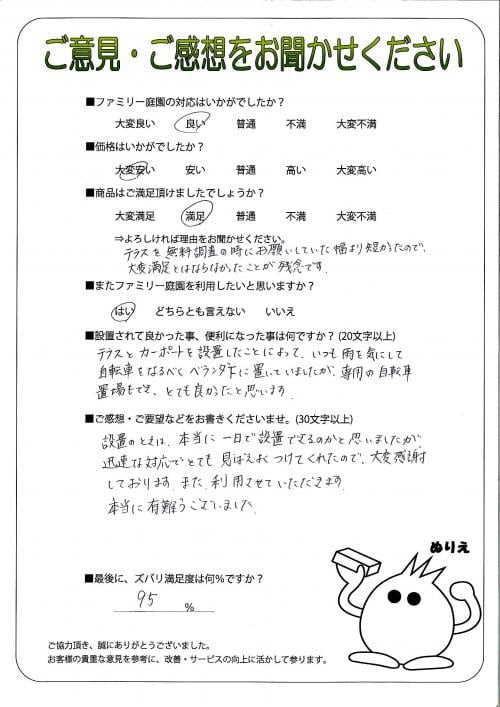 ご意見・ご感想をお聞かせください
■ファミリー庭園の対応はいかがでしたか？
大変良い 良い 普通 不満 大変不満
■価格はいかがでしたか？
大変安い 安い 普通 高い 大変高い
■商品はご満足頂けましたでしょうか？
大変満足 満足 普通 不満 大変不満
⇒よろしければ理由をお聞かせください。
テラスを無料調査の時にお願いしていた幅より短かったので、
大変満足とはならなかったことが残念です。
■またファミリー庭園を利用したいと思いますか？
はい どちらとも言えない いいえ
■設置されて良かった事、便利になった事は何ですか？(20文字以上)
テラスとカーポートを設置したことによって、いつも雨を気にして
自転車をなるべくベランダ下に置いていましたが、専用の自転車
置場もでき、とても良かったと思います。
■ご感想・ご要望などをお書きくださいませ。(30文字以上)
設置のときは、本当に一日で設置できるのかと思いましたが、
迅速な対応でとても見ばえよくつけてくれたので、大変感謝
しております。また、利用させていただきます。
本当に有難うございました。
ぬりえ
■最後に、ズバリ満足度は何％ですか？
95 ％
ご協力頂き、誠にありがとうございました。
お客様の貴重な意見を参考に、改善・サービスの向上に活かして参ります。